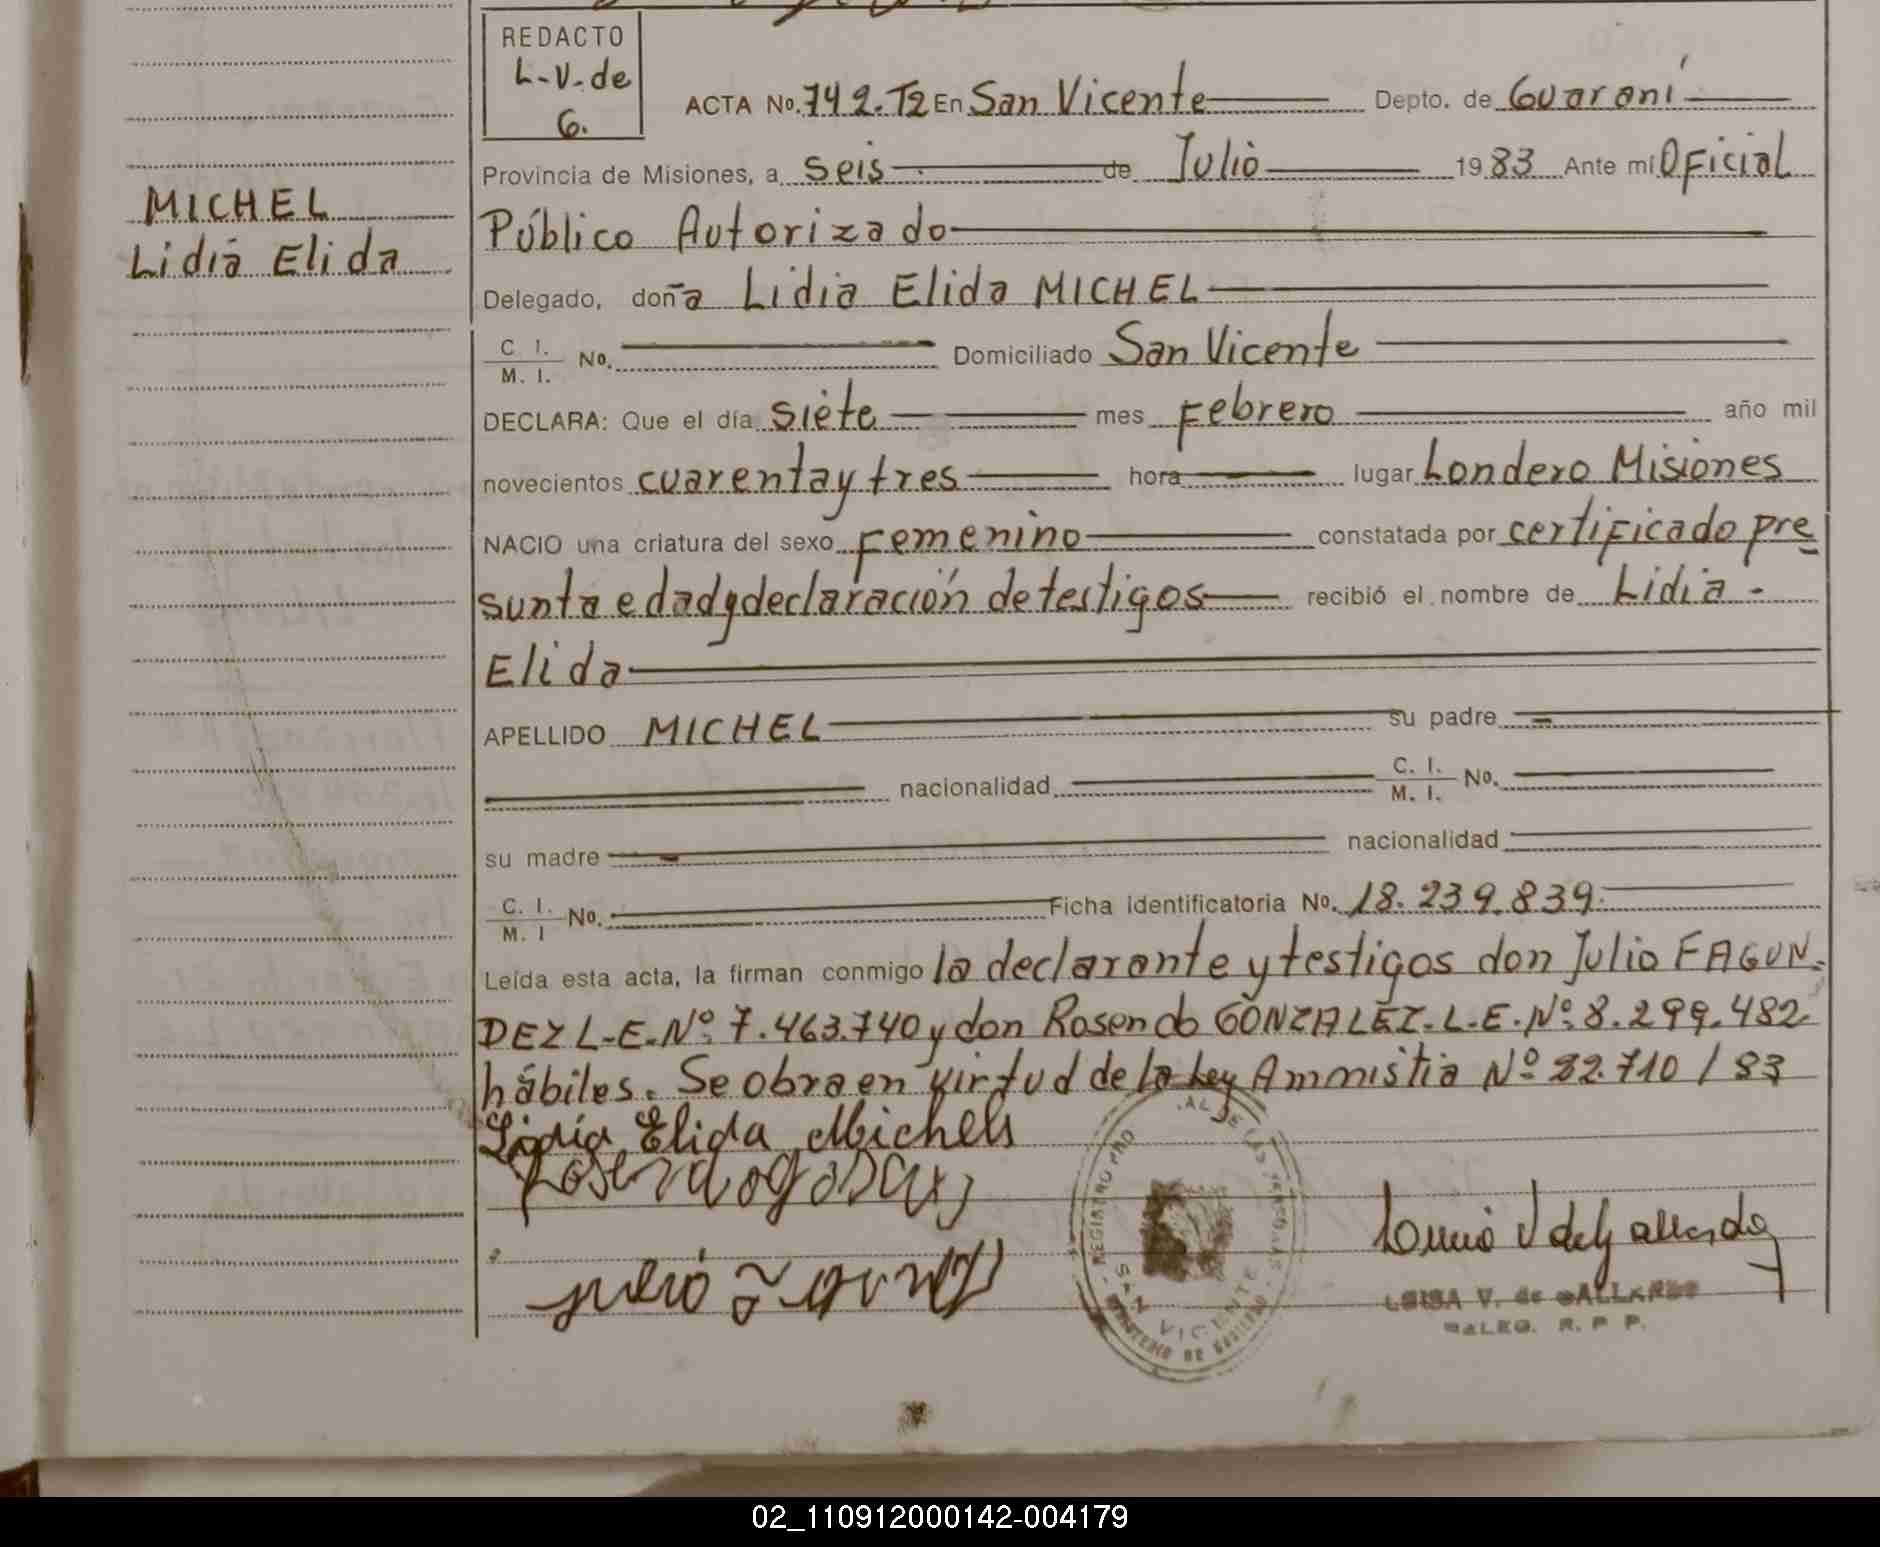 REDACTO
L-V. de
G.
ACTA No. 742. T2 En San Vicente Depto. de Guaraní
Provincia de Misiones, a seis de Julio 1983 Ante mí Oficial
MICHEL
Lidia Elida
Público Autorizado
Delegado, doña Lidia Elida MICHEL
C. I.
M. I. No. Domiciliado San Vicente
DECLARA: Que el día siete mes Febrero año mil
novecientos cuarenta y tres hora lugar Londero Misiones
NACIO una criatura del sexo Femenino constatada por certificado pre
sunta edad y declaración de testigos recibió el nombre de Lidia -
Elida
APELLIDO MICHEL su padre
nacionalidad C. I.
M. I. No.
su madre nacionalidad
C. I.
M. I No. Ficha identificatoria No. 18.239.839
Leída esta acta, la firman conmigo la declarante y testigos don Julio FAGUN-
DEZ L-E.Nº 7.463.740 y don Rosendo GONZALEZ. L.E. Nº: 8.299.482
hábiles. Se obra en virtud de la Ley Ammistia Nº 22.710 / 83
Lidia Elida Michels
SAN VICENTE
LUISA V. de GALLARDO
DALEG. R. P P.
02_110912000142-004179